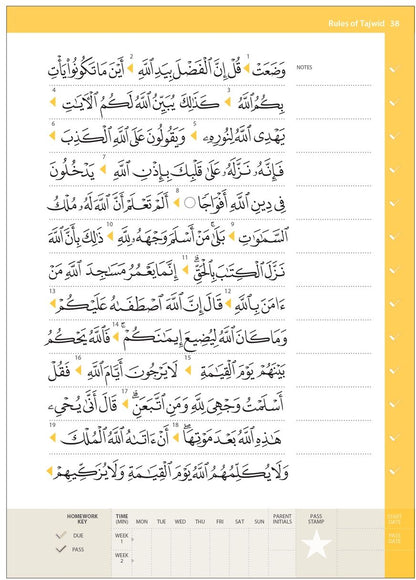 Rules of Tajwid 38
وَضَعَتْ ١ قُلْ إِنَّ ٱلْفَضْلَ بِيَدِ ٱللَّهِ ٢ أَيْنَ مَا تَكُونُوا۟ يَأْتِ
NOTES
بِكُمُ ٱللَّهُ ٣ كَذَٰلِكَ يُبَيِّنُ ٱللَّهُ لَكُمُ ٱلْآيَٰتِ ٤
يَهْدِى ٱللَّهُ لِنُورِهِۦ ٥ وَيَقُولُونَ عَلَى ٱللَّهِ ٱلْكَذِبَ ٦
فَإِنَّهُۥ نَزَّلَهُۥ عَلَىٰ قَلْبِكَ بِإِذْنِ ٱللَّهِ ٧ يَدْخُلُونَ
فِى دِينِ ٱللَّهِ أَفْوَاجًا ٨ أَلَمْ تَعْلَمْ أَنَّ ٱللَّهَ لَهُۥ مُلْكُ
ٱلسَّمَٰوَٰتِ ٩ بَلَىٰ مَنْ أَسْلَمَ وَجْهَهُۥ لِلَّهِ ١٠ ذَٰلِكَ بِأَنَّ ٱللَّهَ
نَزَّلَ ٱلْكِتَٰبَ بِٱلْحَقِّ ١١ إِنَّمَا يَعْمُرُ مَسَٰجِدَ ٱللَّهِ مَنْ
ءَامَنَ بِٱللَّهِ ١٢ قَالَ إِنَّ ٱللَّهَ ٱصْطَفَىٰهُ عَلَيْكُمْ ١٣
وَمَا كَانَ ٱللَّهُ لِيُضِيعَ إِيمَٰنَكُمْ ١٤ فَٱللَّهُ يَحْكُمُ
بَيْنَهُمْ يَوْمَ ٱلْقِيَٰمَةِ ١٥ لَا يَرْجُونَ أَيَّامَ ٱللَّهِ ١٦ فَقُلْ
أَسْلَمْتُ وَجْهِىَ لِلَّهِ وَمَنِ ٱتَّبَعَنِ ١٧ قَالَ أَنَّىٰ يُحْىِۦ
هَٰذِهِ ٱللَّهُ بَعْدَ مَوْتِهَا ١٨ أَنْ ءَاتَىٰهُ ٱللَّهُ ٱلْمُلْكَ ١٩
وَلَا يُكَلِّمُهُمُ ٱللَّهُ يَوْمَ ٱلْقِيَٰمَةِ وَلَا يُزَكِّيهِمْ
HOMEWORK KEY
DUE
PASS
TIME (MIN) MON TUE WED THU FRI SAT SUN PARENT INITIALS PASS STAMP START DATE
WEEK 1
PASS DATE
WEEK 2